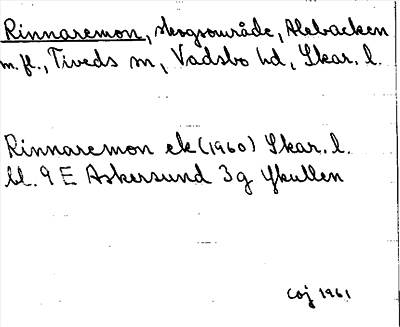 Rinnaremon, skogsområde, Alebacken
m.fl., Tiveds sn, Vadsbo hd, Skar. l.
Rinnaremon ek (1960) Skar. l.
bl. 9 E Askersund 3g Ykullen
Coj 1961